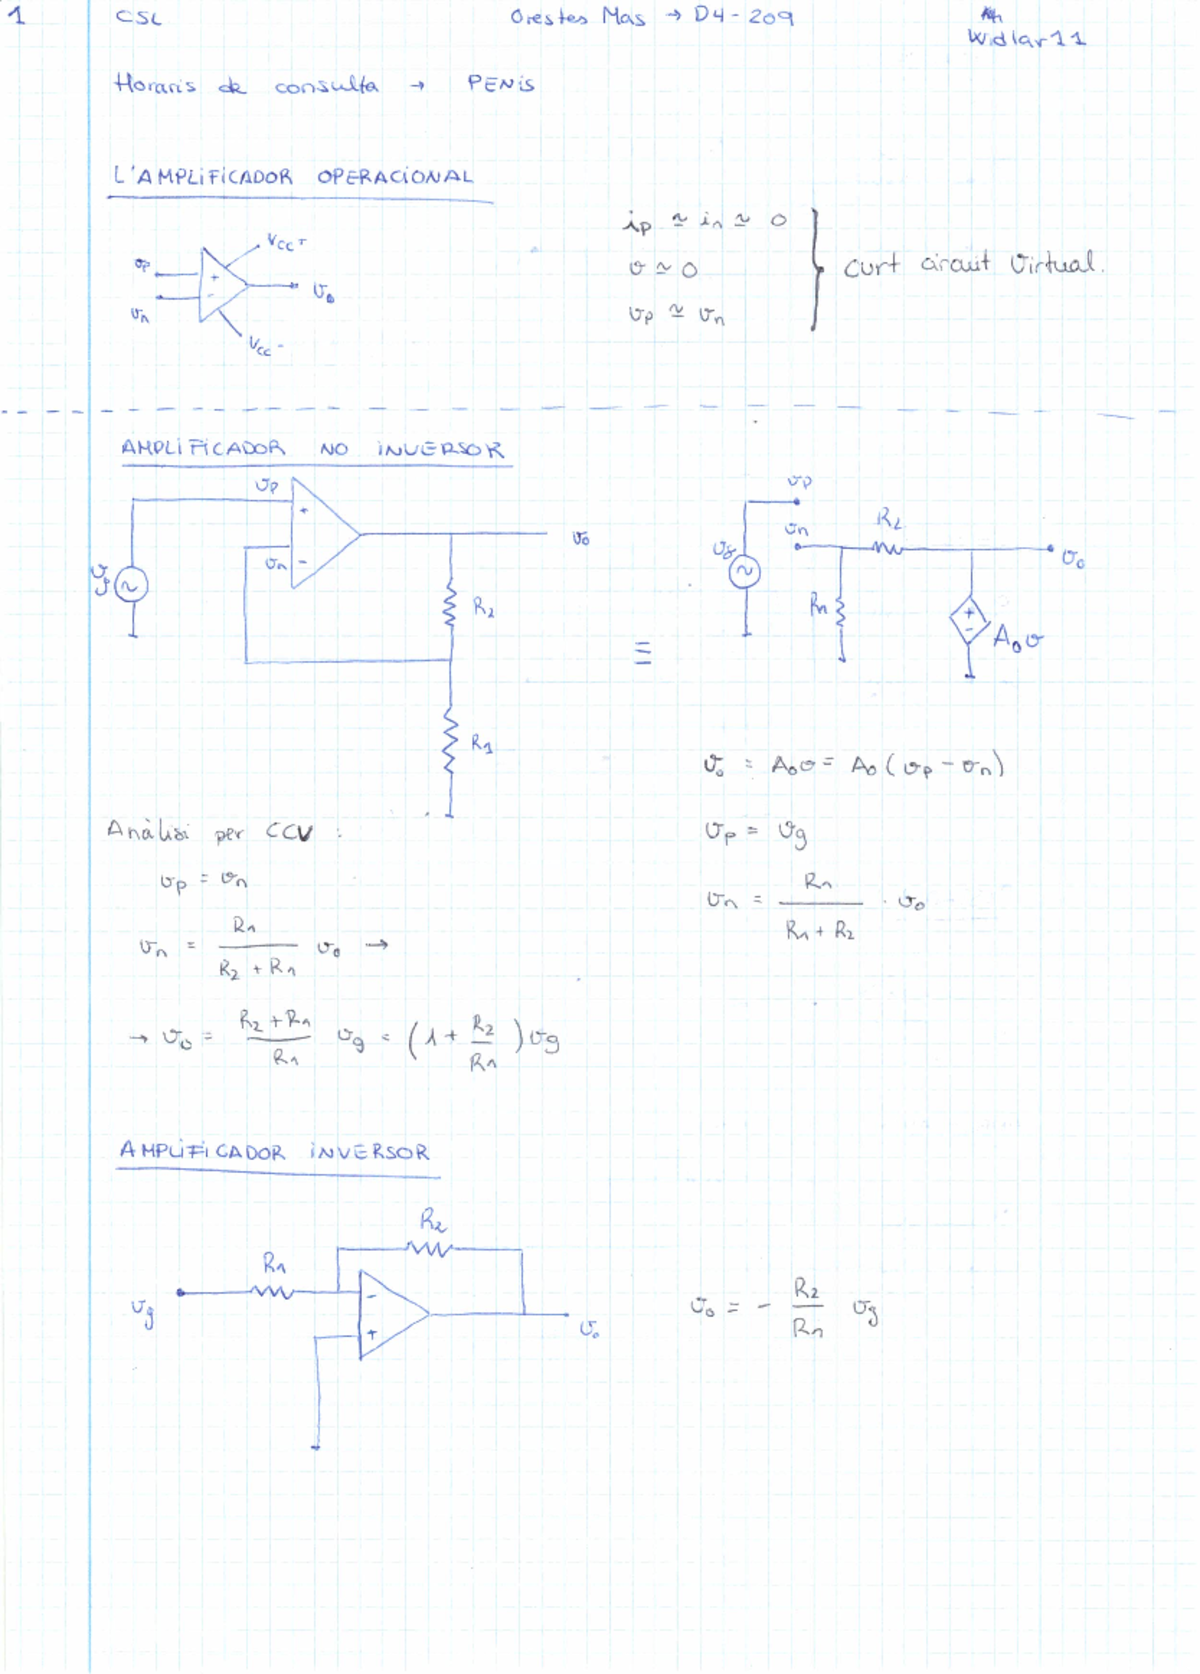 1 CSL Orestes Mas → D4-209
Widlar11
Horaris de consulta → PENIS
L'AMPLIFICADOR OPERACIONAL
vp
vn
Vcc+
Vcc-
vo
ip ≃ in ≃ 0
v ≃ 0
vp ≃ vn
curt circuit virtual.
AMPLIFICADOR NO INVERSOR
vp
+
vn
-
vg
~
vo
R2
R1
≡
vp
vn
vg
~
R2
R1
vo
+
-
A₀v
vo = A₀v = A₀(vp - vn)
vp = vg
vn = R1 / (R1 + R2) · vo
Anàlisi per CCV :
vp = vn
vn = R1 / (R2 + R1) vo →
→ vo = (R2 + R1) / R1 vg = (1 + R2/R1) vg
AMPLIFICADOR INVERSOR
R2
R1
vg
-
+
vo
vo = - R2/R1 vg